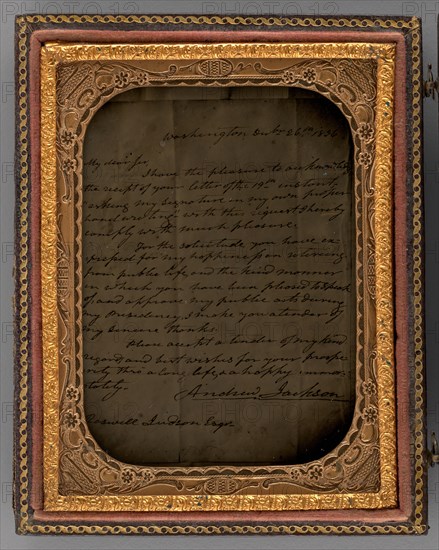 Washington Octr 26th 1836
My dear Sir,
I have the pleasure to acknowledge
the receipt of your letter of the 19th instant,
asking my signature in my own proper
hand writing with this request I hereby
comply with much pleasure.
For the solicitude you have ex-
pressed for my happiness on retiring
from public life, and the kind manner
in which you have been pleased to speak
of and approve my public acts during
my Presidency, I make you a tender of
my sincere thanks.
Please accept a tender of my kind
regards and best wishes for your prospe-
rity thro a long life, & a happy immor-
tality.
Andrew Jackson
Roswell Judson Esqr
PHOTO12